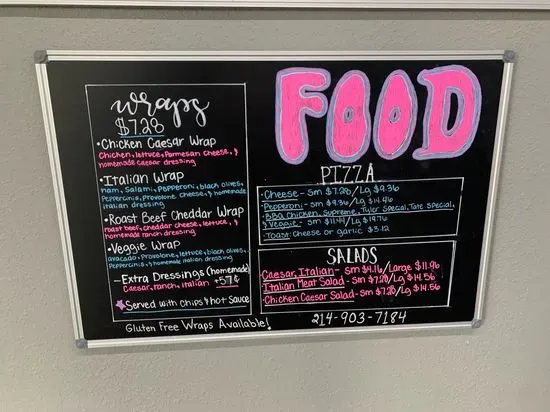 wraps
$7.28
•Chicken Caesar Wrap
Chicken, lettuce, Parmesan Cheese, &
homemade Caesar dressing
•Italian Wrap
Ham, Salami, Pepperoni, black olives,
Peppercinis, Provolone Cheese, & homemade
italian dressing
•Roast Beef Cheddar Wrap
roast beef, cheddar cheese, lettuce, &
homemade ranch dressing
•Veggie Wrap
avocado, Provolone, lettuce, black olives,
Peppercinis, & homemade italian dressing.
-Extra Dressings (homemade)
Caesar, ranch, italian +57¢
Served with chips & hot sauce
Gluten Free Wraps Available!
FOOD
PIZZA
-Cheese - sm $7.28/Lg $9.36
-Pepperoni - sm $9.36/Lg $14.46
-BBQ Chicken, Supreme, Tyler Special, Tate Special,
& Veggie - sm $11.44/Lg $19.76
-Toast: Cheese or garlic $3.12
SALADS
Caesar, Italian - sm $4.16/Large $11.96
Italian Meat Salad - sm $7.28/Lg $14.56
-Chicken Caesar Salad - sm $7.28/Lg $14.56
214-903-7184